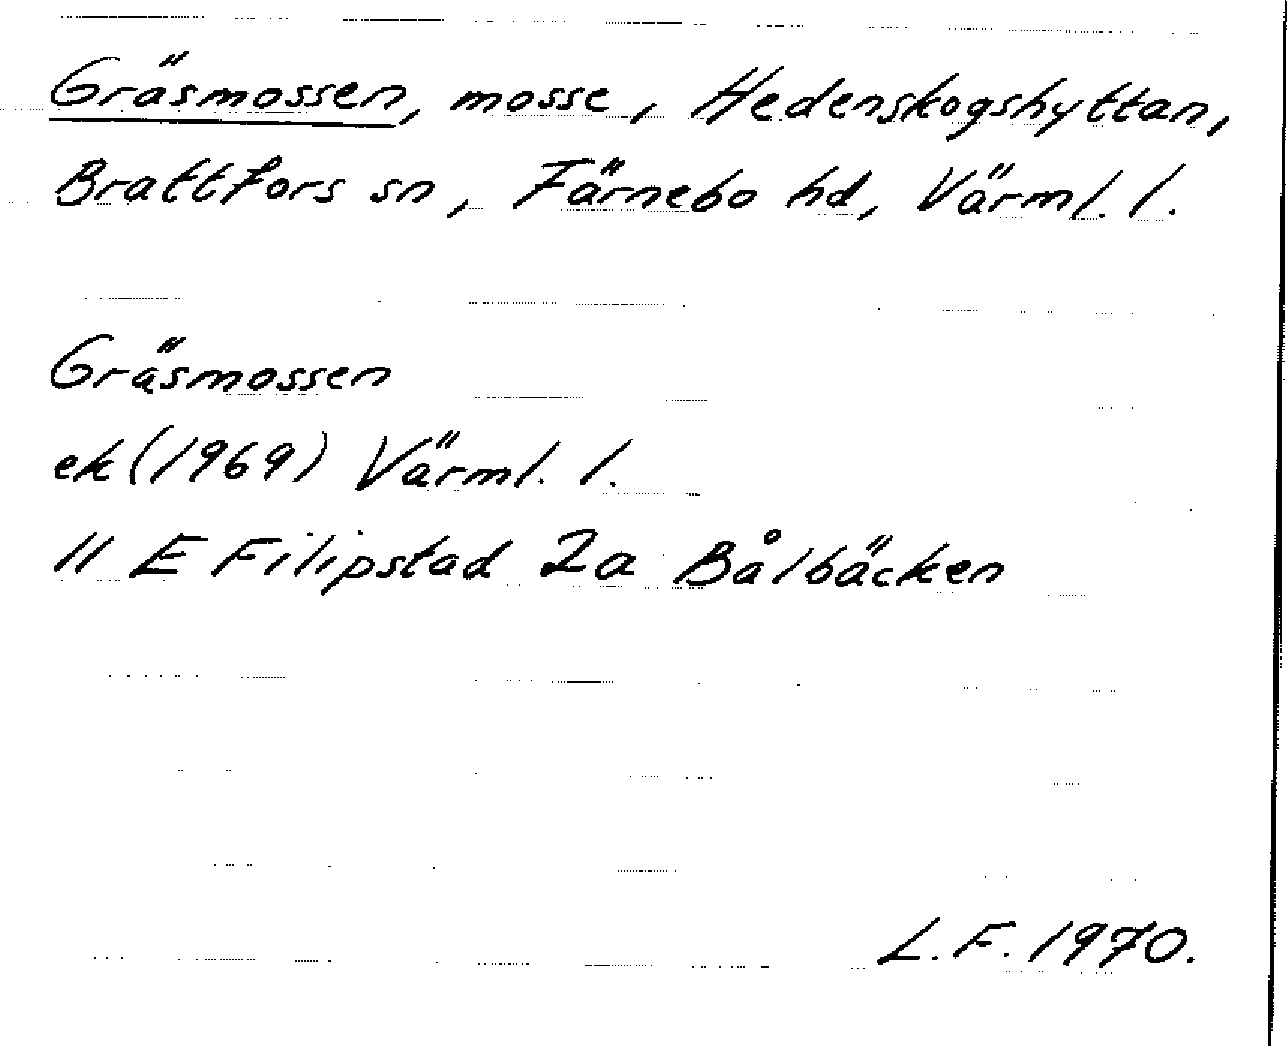 Gräsmossen, mosse, Hedenskogshyttan,
Brattfors sn, Färnebo hd, Värml. l.
Gräsmossen
ek (1969) Värml. l.
11 E Filipstad 2a Bålbäcken
L.F. 1970.